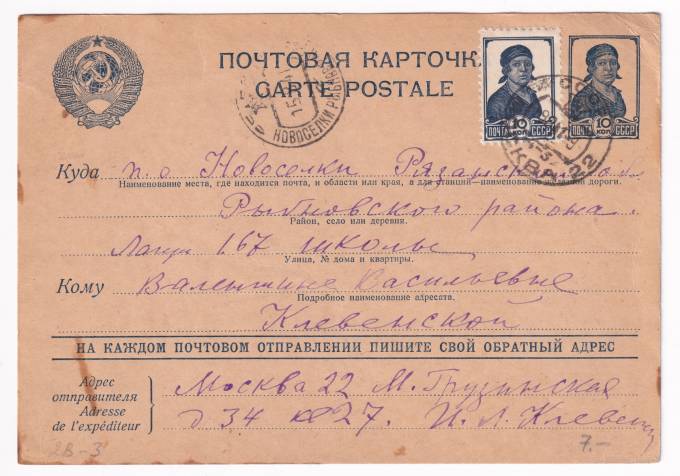 ПОЧТОВАЯ КАРТОЧК
CARTE POSTALE
ПОЧТА 10 КОП. СССР
ПОЧТА 10 КОП. СССР
НОВОСЕЛКИ
Куда п.о Новоселки Рязанск об.
Наименование места, где находится почта, и области или края, а для станций—наименование железной дороги.
Рыбновского района.
Район, село или деревня.
Лагерь 167 школы
Улица, № дома и квартиры.
Кому Валентине Васильевне
Подробное наименование адресата.
Клевенской
НА КАЖДОМ ПОЧТОВОМ ОТПРАВЛЕНИИ ПИШИТЕ СВОЙ ОБРАТНЫЙ АДРЕС
Адрес отправителя
Adresse de l'expéditeur
Москва 22 М. Грузинская
д 34 кв 27. И. Л. Клевенск
2В-3
7.-